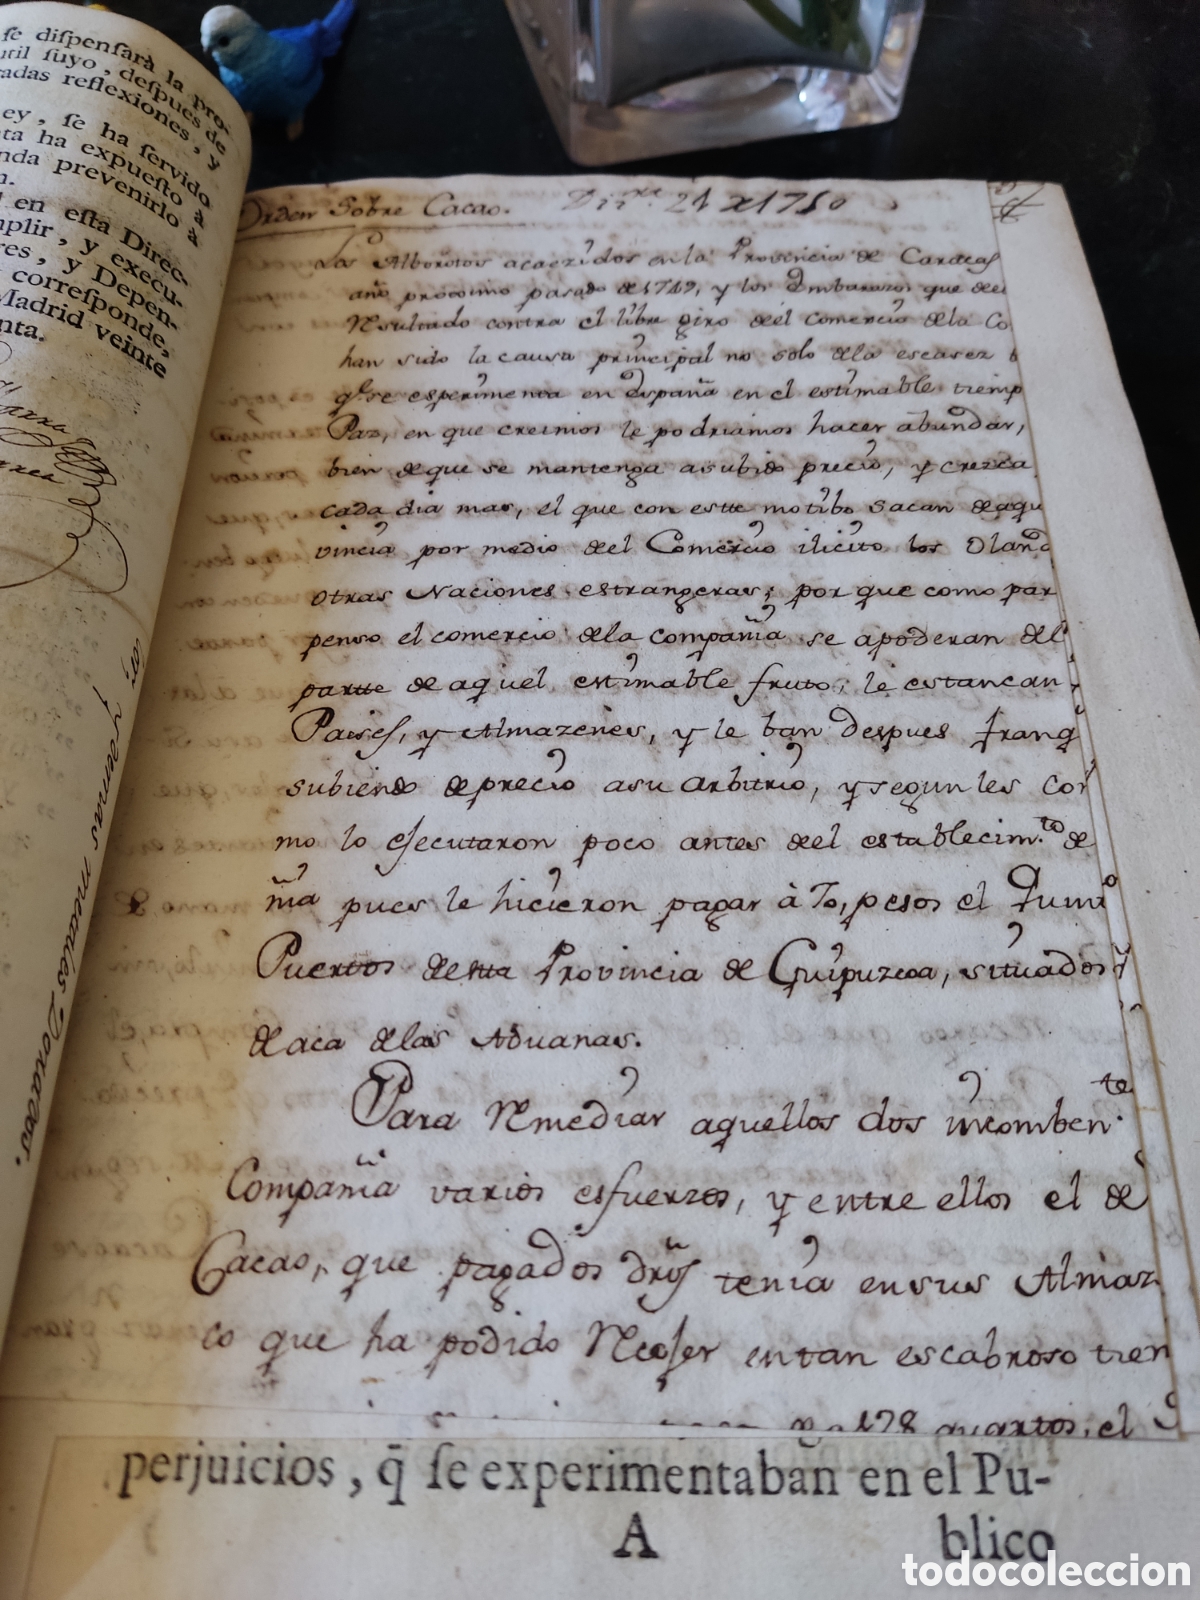 se dispensarà la pro-
util suyo, despues de
adas reflexiones, y
ey, se ha servido
ta ha expuesto à
nda prevenirlo à
n.
en esta Direc-
mplir, y execu-
res, y Depen-
corresponde,
Madrid veinte
nta.
Orden Sobre Cacao. Dizre. 21 de 1750
Los Alborotos acaezidos en la Provincia de Caracas
año proximo pasado de 1749, y los Embarazos que de
Resultado contra el libre giro del Comercio de la Co
han sido la causa principal no solo de la escasez
qe. se esperimenta en España en el estimable tiemp
Paz, en que creimos le podriamos hacer abundar,
bien de que se mantenga a subido precio, y crezca
cada dia mas, el que con este motibo sacan de aqu
vincia por medio del Comercio ilicito los Oland
otras Naciones estrangeras; por que como par
penso el comercio de la compañia se apoderan del
parte de aquel estimable fruto; le estancan
Paises, y Almazenes, y le ban despues franq
subiendo de precio a su arbitrio, y segun les cor
mo lo ejecutaron poco antes del establecimto. de
ñia pues le hicieron pagar à 70, pesos el Quin
Puertos desta Provincia de Guipuzcoa, situados
de aca de las Aduanas.
Para Remediar aquellos dos incombente.
Compañia varios esfuerzos, y entre ellos el de
Cacao, que pagados drõs tenia en sus Almaz
co que ha podido Recojer en tan escabroso tien
178 quartos, el S
y demas meales Dorados.
perjuicios, q̃ se experimentaban en el Pu-
A blico
todocoleccion